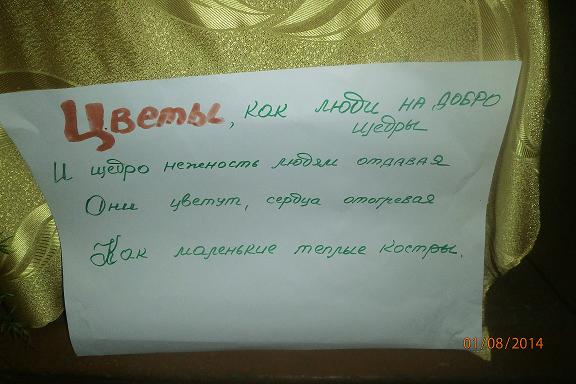 Цветы, как люди на добро
щедры
И щедро нежность людям отдавая
Они цветут, сердца отогревая
Как маленькие теплые костры.
01/08/2014